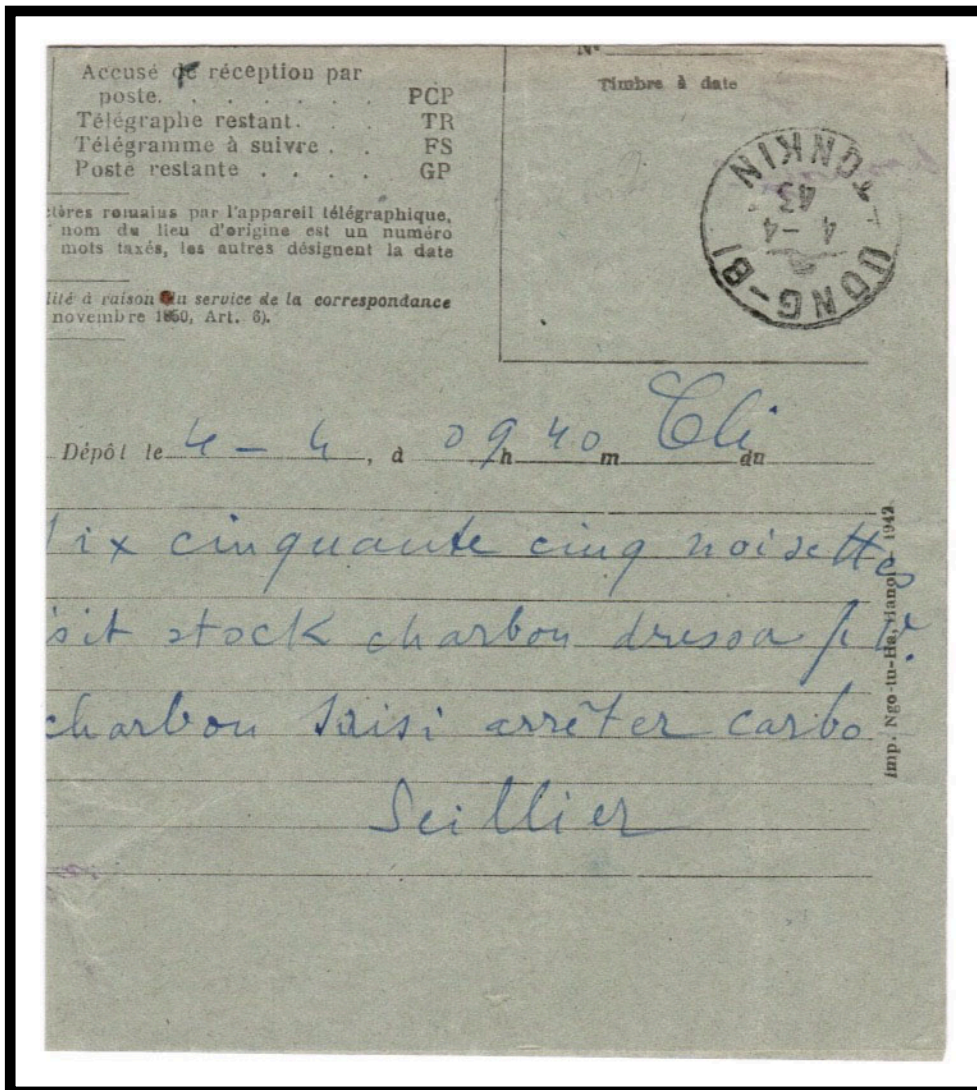 Accusé de réception par
poste. . . . . . . PCP
Télégraphe restant. . . TR
Télégramme à suivre . . FS
Poste restante . . . . GP
Timbre à date
TONKIN
4 -4
43
UONG-BI
tères romains par l'appareil télégraphique,
nom du lieu d'origine est un numéro
mots taxés, les autres désignent la date
lité à raison du service de la correspondance
novembre 1850, Art. 6).
Dépôt le 4 - 4, à 09 h 40 m du
ix cinquante cinq noisettes
oit stock charbon dressa
charbon saisi arrêter carbo
Seillier
Imp. Ngo-tu-Ha, Hanoi - 1942